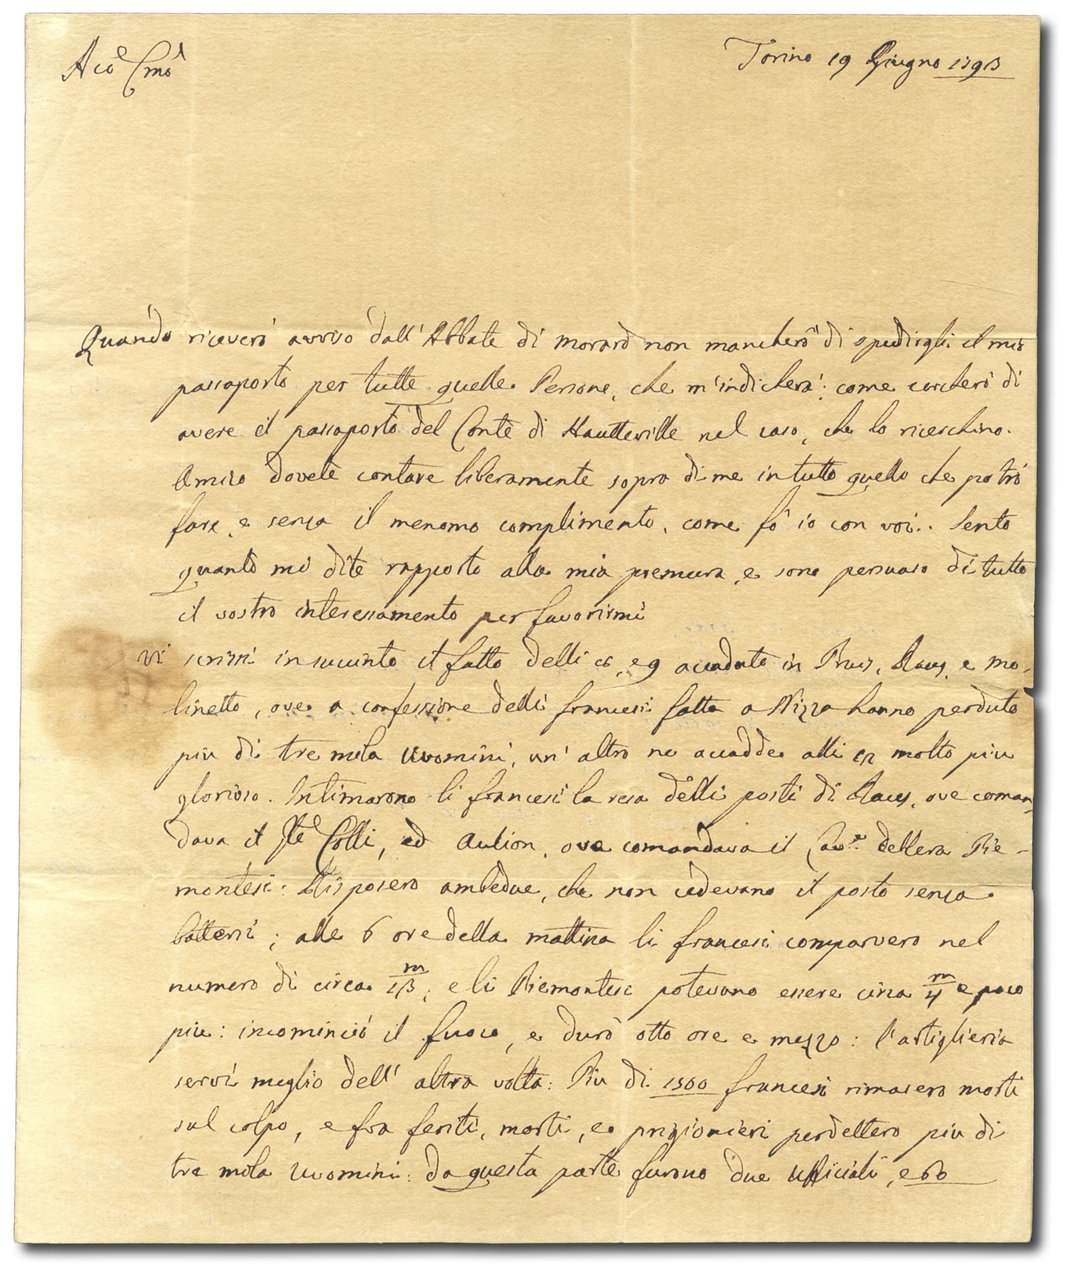 Aco Cmo
Torino 19 Giugno 1793
Quando riceverò avviso dall' Abbate di Morard non mancherò di spedirgli il mio
passaporto per tutte quelle Persone, che m'indicherà: come cercherò di
avere il passaporto del Conte di Hautteville nel caso, che lo ricerchino.
Amico dovete contare liberamente sopra di me in tutto quello che potrò
fare, e senza il menomo complimento, come fò io con voi.. Sento
quanto mi dite rapporto alla mia premura, e sono persuaso di tutto
il vostro interessamento per favorirmi
Vi scrissi in succinto il fatto delli e 9 accaduto in Raus, e Mo-
linetto, ove a confessione delli francesi fatta a Nizza hanno perduto
più di tre mila Uuomini, un' altro ne accadde alli 12 molto più
glorioso. Intimarono li francesi la resa delli posti di Raus, ove coman
dava il Colli, ed Aution, ove comandava il Cavr. dellera Pie-
montesi: Risposero ambedue, che non cedevano il posto senza
battersi; alle 6 ore della mattina li francesi comparvero nel
numero di circa m/13, e li Piemontesi potevano essere circa m/4 e poco
più: incominciò il fuoco, e durò otto ore e mezzo: l'artiglieria
servì meglio dell' altra volta: Più di 1500 francesi rimasero morti
sul colpo, e fra feriti, morti, e prigionieri perdettero più di
tre mila Uuomini: da questa parte furono due Ufficiali, e 60